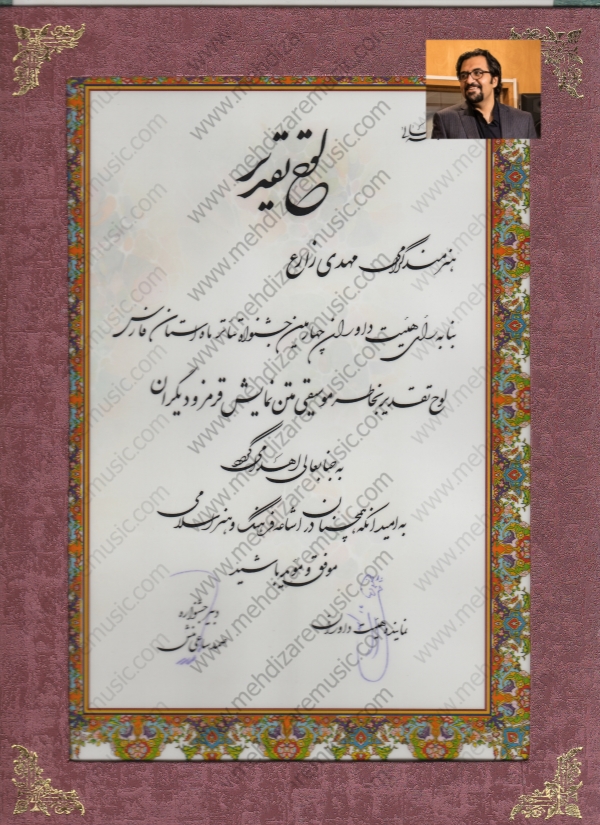 لوح تقدیر
هنرمند گرامی مهدی زارع
بنا به رأی هیئت داوران چهارمین جشنواره تئاتر ماه استان فارس
لوح تقدیر بخاطر موسیقی متن نمایش قرمز و دیگران
به جنابعالی اهدا می گردد
به امید آنکه همچنان در اشاعه فرهنگ و هنر اسلامی
موفق و مؤید باشید
نماینده هیئت داوران
دبیر جشنواره
www.mehdizaremusic.com